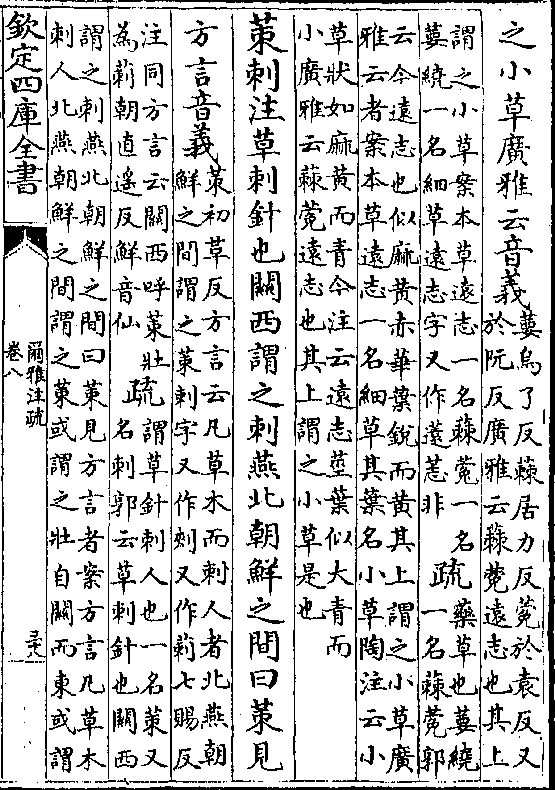 之小草廣雅云音義
葽烏了反蕀居力反菀於袁反又
於阮反廣雅云蕀菀遠志也其上
謂之小草案本草遠志一名蕀菀一名
葽繞一名細草遠志字又作薳非
疏
藥草也葽繞
一名蕀菀郭
云今遠志也似麻黄赤華葉銳而黄其上謂之小草廣
雅云者案本草遠志一名細草其葉名小草陶注云小
草狀如麻黄而青今注云遠志莖葉似大青而
小廣雅云蕀菀遠志也其上謂之小草是也
茦刺注草刺針也關西謂之刺燕北朝鮮之間曰茦見
方言音義
茦初草反方言云凡草木而刺人者北燕朝
鮮之間謂之茦刺字又作刾又作莿七賜反
注同方言云關西呼茦壯
為莿朝直遥反鮮音仙
疏
謂草針刺人也一名茦又
名刺郭云草刺針也關西
謂之刺燕北朝鮮之間曰茦見方言者案方言凡草木
刺人北燕朝鮮之間謂之茦或謂之壯自關而東或謂
欽定四庫全書
爾雅注疏
卷八